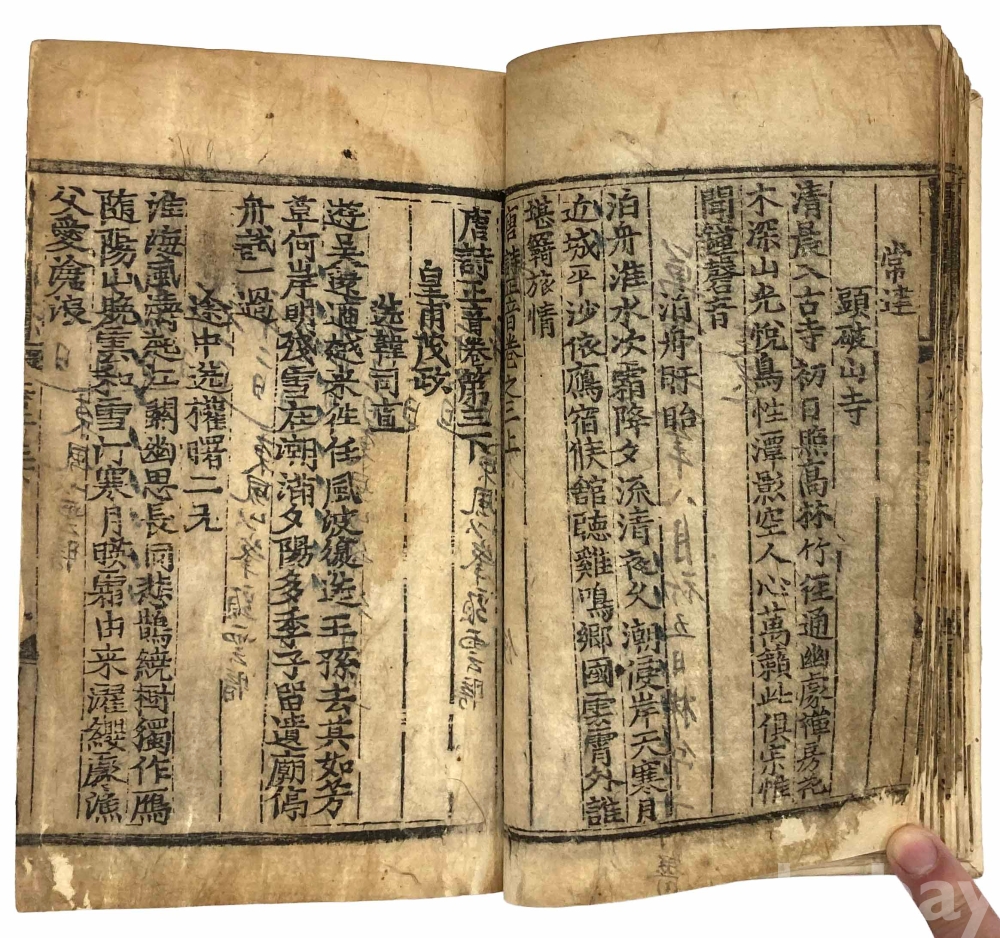 常建
題破山寺
清晨入古寺初日照髙林竹徑通幽處禪房花
木深山光悅鳥性潭影空人心萬籟此俱惟
聞鐘磬音
泊舟盱眙
年八月初五日
泊舟淮水次霜降夕流清夜久潮浸岸天寒月
近城平沙依鴈宿候舘聽雞鳴鄉國雲霄外誰
堪羇旅情
唐詩正音卷之三上
唐詩正音卷第三下
皇甫茂政
送韓司直
遊吴還適越来往任風波復送王孫去其如芳
草何岸明殘雪在潮滿夕陽多季子留遺廟停
舟試一過
二日東風
途中送權曙二兄
淮海風濤起江關幽思長同悲鵲繞樹獨作鴈
随陽山晚雲和雪汀寒月映霜由来濯纓處漁
父愛滄浪